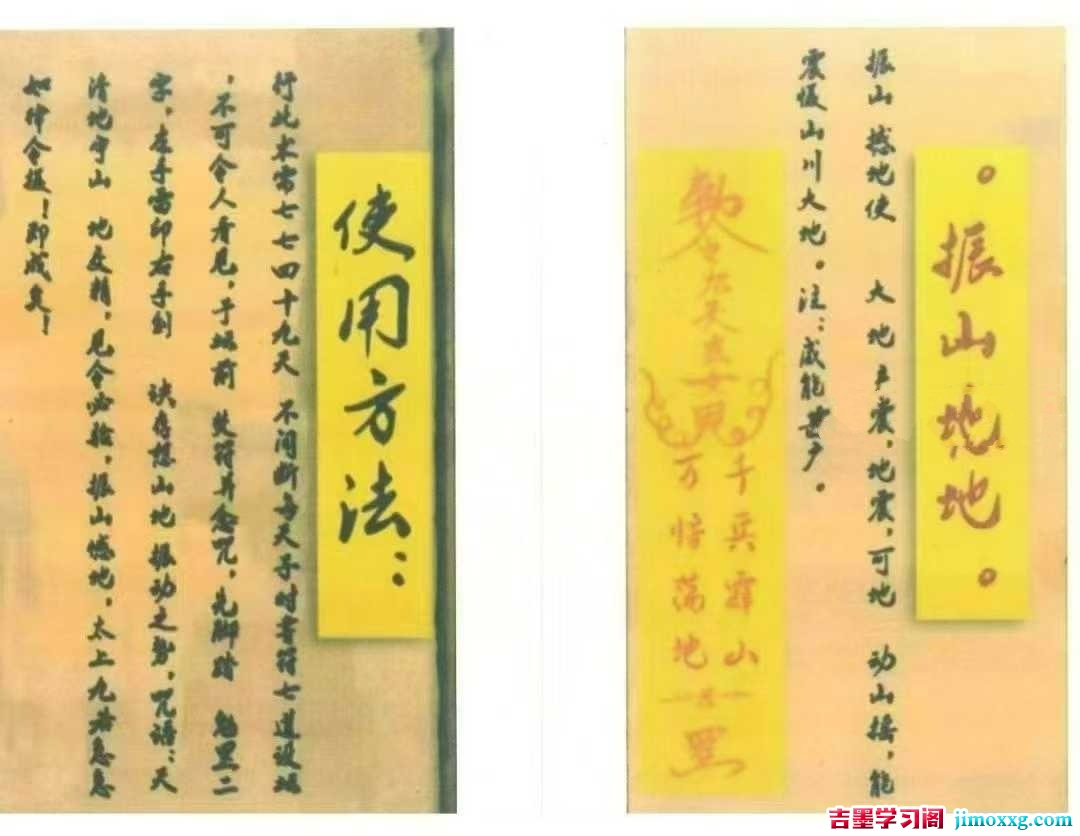 振山地地
振山 撼地使 大地 震,地震,可地 动山摇,能
震慑山川大地。注:威能
敕令九天玄女
千兵霹山
万 荡地
罡
使用方法:
行此术需七七四十九天 不间断每天子时书符七道设坛
,不可令人看见,于坛前 焚符并念咒,先脚踏 魁罡二
字,左手雷印右手剑 诀存想山地 振动之势,咒语:天
清地宁山 地 精,见令必 ,振山憾地,太上九 急急
如律令摄!即成矣!
吉墨学习阁 jimoxxg.com